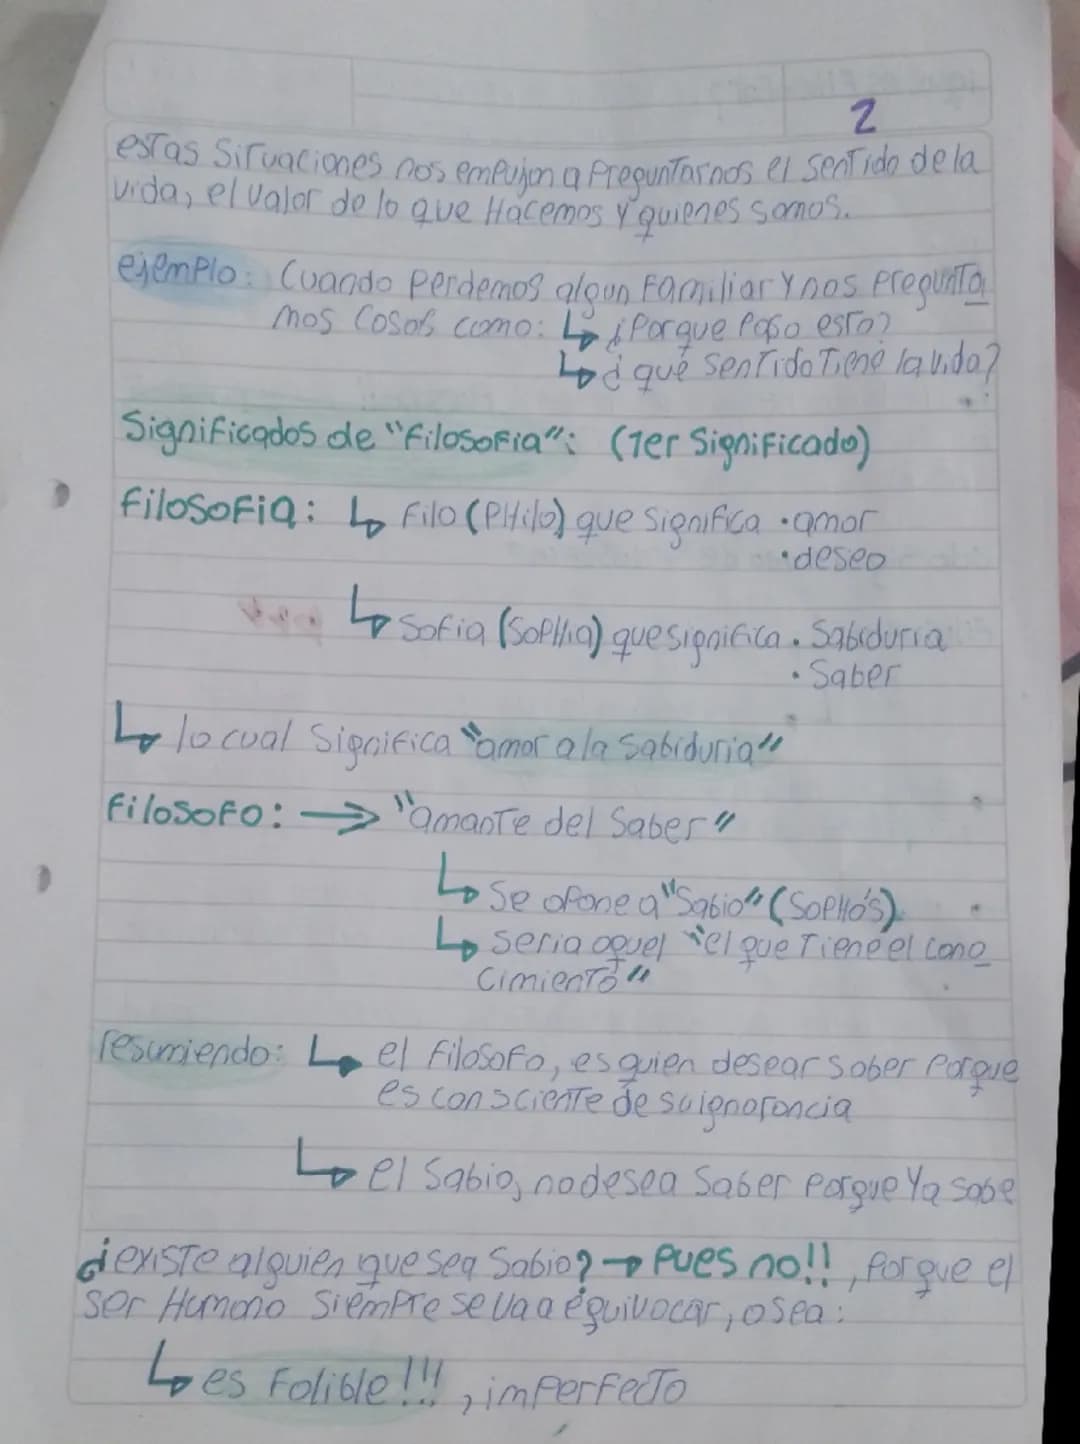 2
estas situaciones nos empujan a preguntarnos el sentido de la
vida, el valor de lo que Hacemos y quienes somos.
ejemplo: Cuando perdemos algun Familiar y nos pregunta
mos cosas como: ↳ ¿Porque Paso esto?
↳ ¿que sentido Tiene la vida?
Significados de "Filosofia": (1er Significado)
Filosofia: ↳ Filo (PHilo) que significa • amor
• deseo
↳ Sofia (SoPHia) que significa • Sabiduria
• Saber
↳ lo cual Significa "amor a la Sabiduria"
Filosofo: → "amante del Saber"
↳ Se opone a "Sabio" (SoPHó's).
↳ seria aquel "el que Tiene el cono
cimiento"
resumiendo: ↳ el Filosofo, es quien desear saber Porque
es consciente de su ignorancia
↳ el Sabio, no desea Saber Porque Ya sabe
¿existe alguien que sea Sabio? → Pues no!!, Porque el
ser Humano Siempre se va a equivocar, o sea:
↳ es Falible!!!, imperfecto